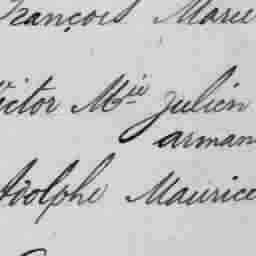 François Marie
Victor Mie Julien
arman
Adolphe Maurice